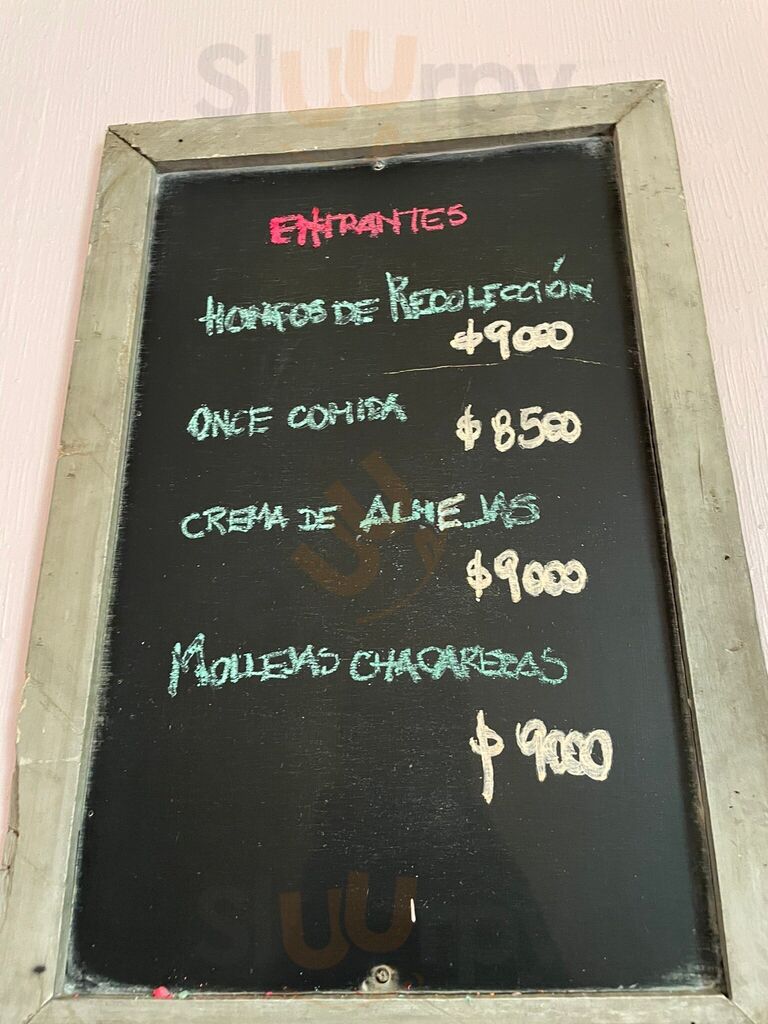 Sluurpy
ENTRANTES
HONGOS DE RECOLECCIÓN
$9000
ONCE COMIDA $8500
CREMA DE ALMEJAS
$9000
MOLLEJAS CHACARERAS
$9000
Sluurpy